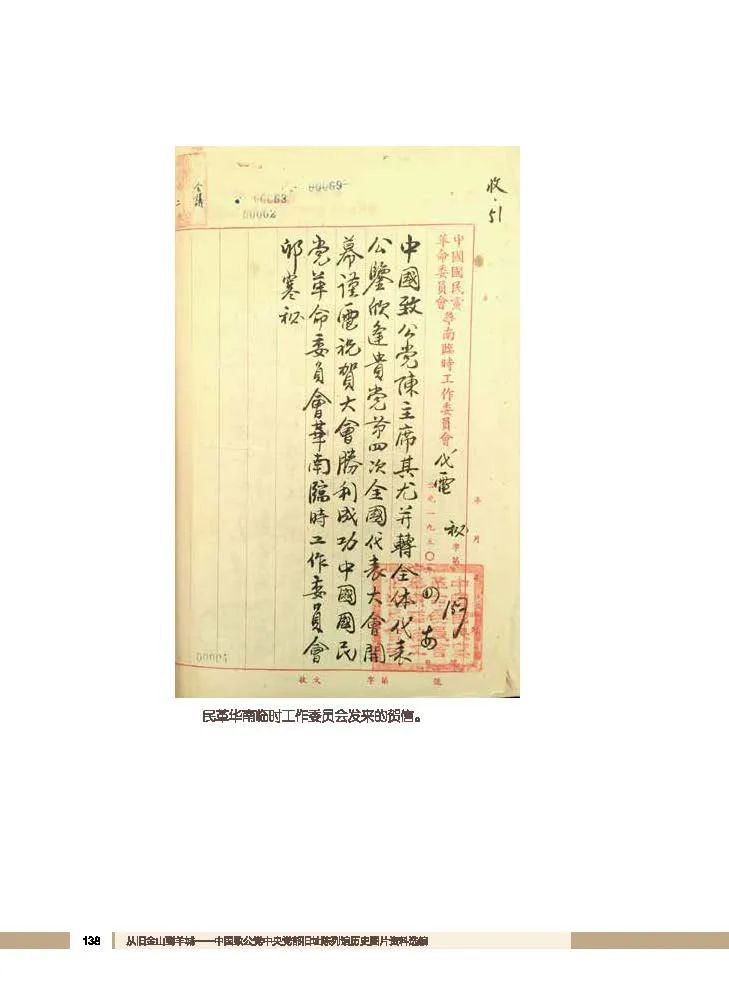 收·51
00069
00063
00062
会議
中國國民黨
革命委員會
華南臨時工作委員會
代電
年 月
秘
字第
公元一九五〇年
四
中國致公党陳主席其尤并轉全体代表
公鑒欣逢貴党第四次全國代表大會開
幕謹電祝賀大會勝利成功中國國民
党革命委員會華南臨時工作委員會
卯寒秘
號 第 字 文 收
民革华南临时工作委员会发来的贺信。
138
从旧金山到羊城——中国致公党中央党部旧址陈列馆历史图片资料选编